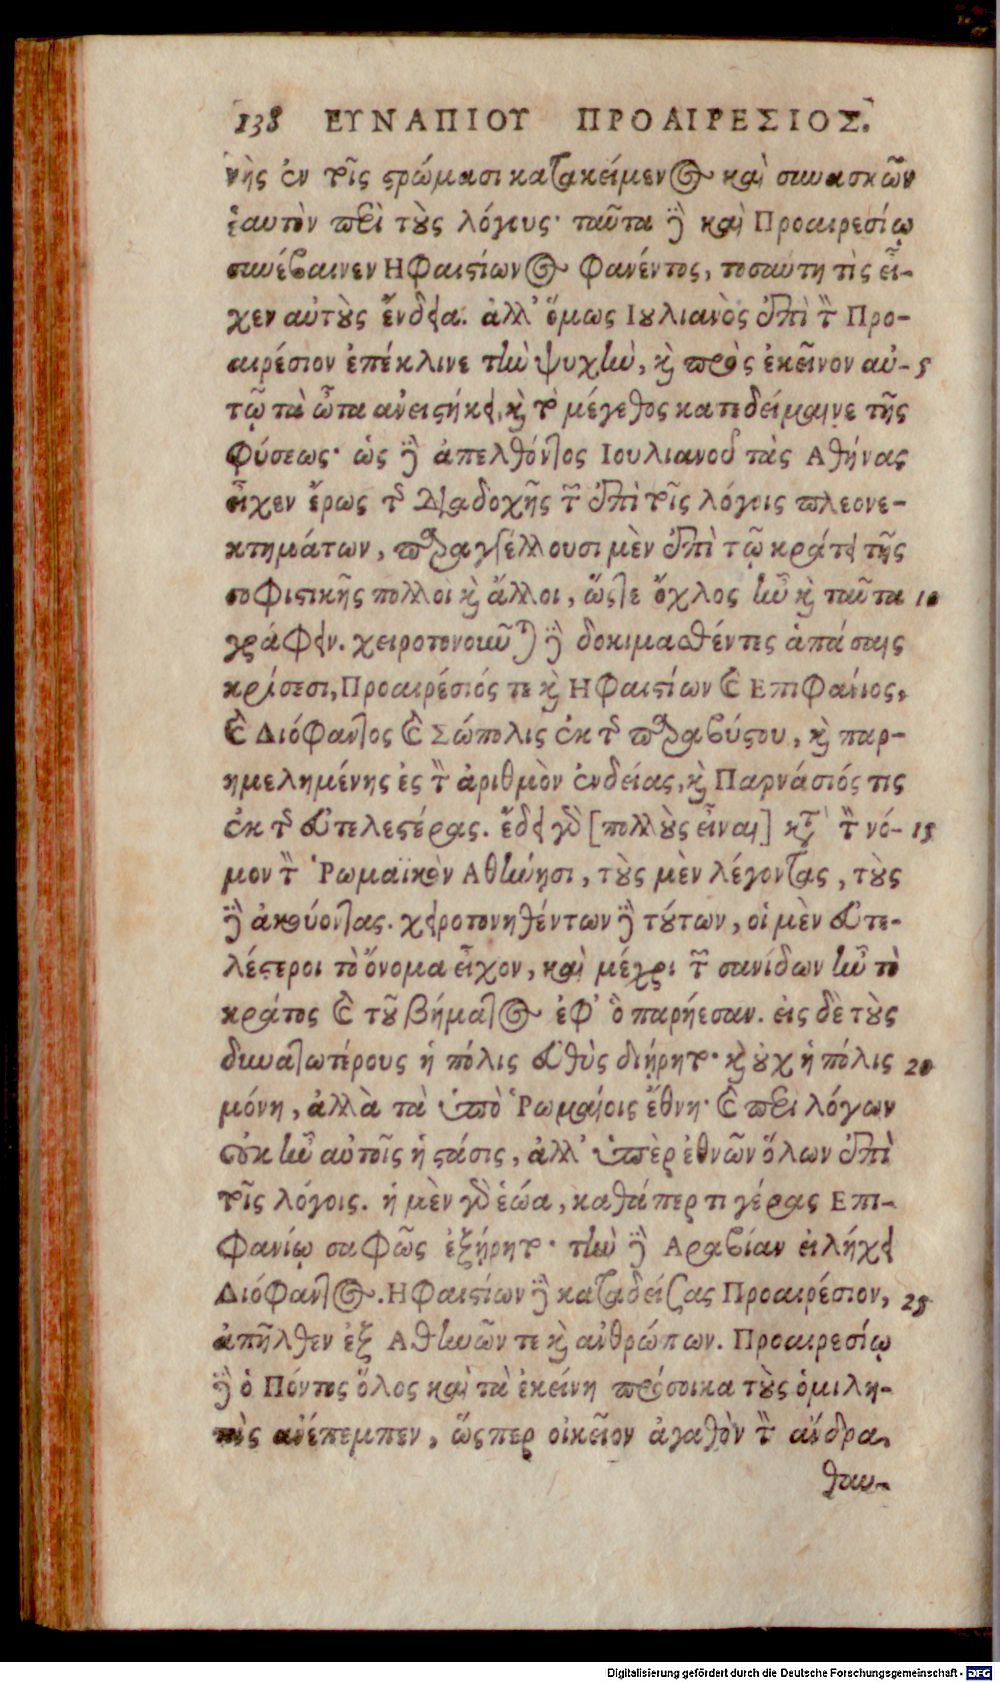 138 ΕΥΝΑΠΙΟΥ ΠΡΟΑΙΡΕΣΙΟΣ.
νὴς ἐν τοῖς στρώμασι κατακείμενος καὶ συνασκῶν
ἑαυτὸν περὶ τοὺς λόγους· ταῦτα δὲ καὶ Προαιρεσίῳ
συνέβαινεν Ηφαιστίωνος φανέντος, τοσαύτη τὶς εἶ-
χεν αὐτοὺς ἔνδεια. ἀλλ' ὅμως Ιουλιανὸς ἐπὶ τὸν Προ-
αιρέσιον ἐπέκλινε τὴν ψυχὴν, καὶ πρὸς ἐκεῖνον αὐ- 5
τῷ τὰ ὦτα ἀνειστήκει, καὶ τὸ μέγεθος κατεδείμαινε τῆς
φύσεως· ὡς δὲ ἀπελθόντος Ιουλιανοῦ τὰς Αθήνας
εἶχεν ἔρως τῆς διαδοχῆς τῶν ἐπὶ τοῖς λόγοις πλεονε-
κτημάτων, παραγγέλλουσι μὲν ἐπὶ τῷ κράτει τῆς
σοφιστικῆς πολλοὶ καὶ ἄλλοι, ὥστε ὄχλος ἦν καὶ ταῦτα 10
γράφειν. χειροτονοῦνται δὲ δοκιμασθέντες ἁπάσαις
κρίσεσι, Προαιρέσιός τε καὶ Ηφαιστίων καὶ Επιφάνιος,
καὶ Διόφαντος καὶ Σώπολις ἐκ τῆς παραβύστου, καὶ παρ-
ημελημένης ἐς τὸν ἀριθμὸν ἐνδείας, καὶ Παρνάσιός τις
ἐκ τῆς εὐτελεστέρας. ἔδει γὰρ [πολλοὺς εἶναι] κατὰ τὸν νό- 15
μον τὸν Ῥωμαϊκὸν Αθήνῃσι, τοὺς μὲν λέγοντας, τοὺς
δὲ ἀκούοντας. χειροτονηθέντων δὲ τούτων, οἱ μὲν εὐτε-
λέστεροι τὸ ὄνομα εἶχον, καὶ μέχρι τῶν σανίδων ἦν τὸ
κράτος καὶ τοῦ βήματος ἐφ' ὃ παρῄεσαν. εἰς δὲ τοὺς
δυνατωτέρους ἡ πόλις εὐθὺς διῄρητο· καὶ οὐχ ἡ πόλις 20
μόνη, ἀλλὰ τὰ ὑπὸ Ῥωμαίοις ἔθνη· καὶ περὶ λόγων
οὐκ ἦν αὐτοῖς ἡ στάσις, ἀλλ' ὑπὲρ ἐθνῶν ὅλων ἐπὶ
τοῖς λόγοις. ἡ μὲν γὰρ ἑώα, καθάπερ τι γέρας Επι-
φανίῳ σαφῶς ἐξῄρητο· τὴν δὲ Αραβίαν εἰλήχει
Διόφαντος. Ηφαιστίων δὲ καταδείσας Προαιρέσιον, 25
ἀπῆλθεν ἐξ Αθηνῶν τε καὶ ἀνθρώπων. Προαιρεσίῳ
δὲ ὁ Πόντος ὅλος καὶ τὰ ἐκείνῃ πρόσοικα τοὺς ὁμιλη-
τὰς ἀνέπεμπεν, ὥσπερ οἰκεῖον ἀγαθὸν τὸν ἄνδρα
θαυ-
Digitalisierung gefördert durch die Deutsche Forschungsgemeinschaft - DFG